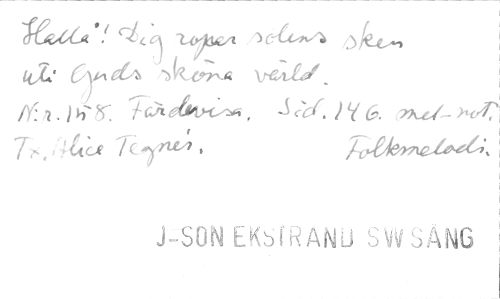 Hallå! Dig ropar solens sken
uti Guds sköna värld.
N:r. 158. Färdevisa. Sid. 146. mel-not.
Tx. Alice Tegnér. Folkmelodi.
J-SON EKSTRAND SW SÅNG